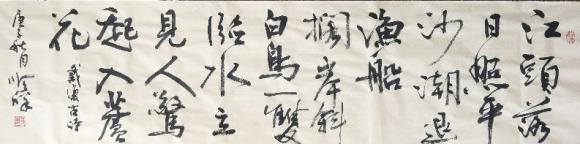 江頭落
日照平
沙潮退
漁船
擱岸斜
白鳥一雙
臨水立
見人驚
起入蘆
花
戴復古詩
庚子秋月